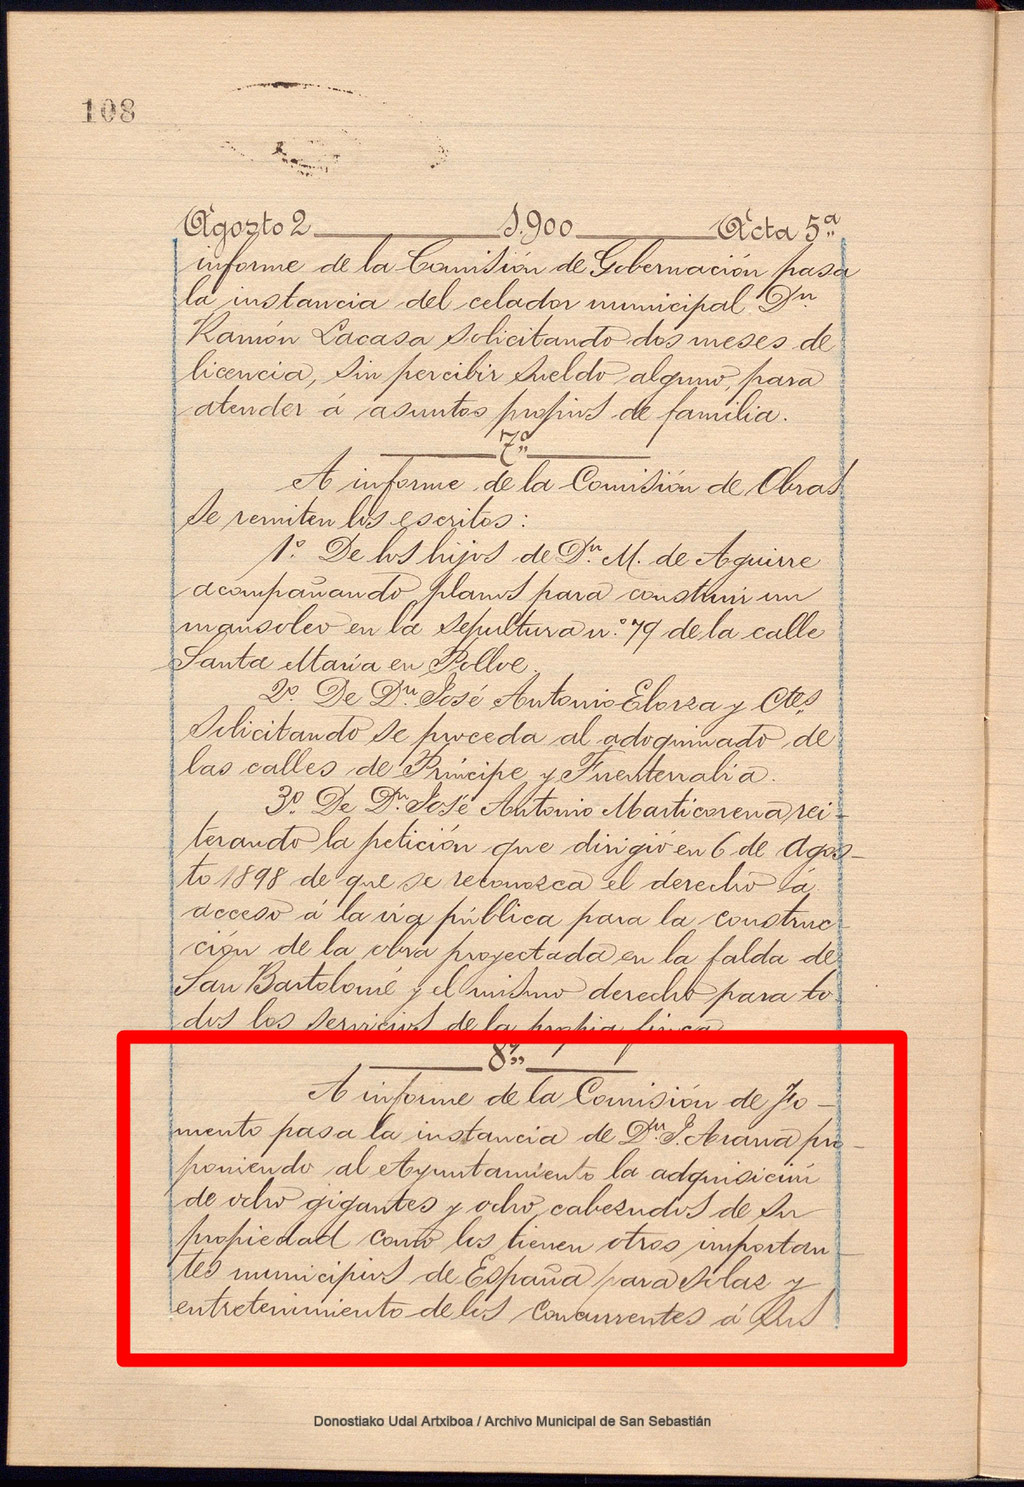 108
Agosto 2 1.900 Acta 5ª
informe de la Comisión de Gobernación pasa
la instancia del celador municipal Dn
Ramón Lacasa solicitando dos meses de
licencia, sin percibir sueldo alguno, para
atender á asuntos propios de familia.
7º
A informe de la Comisión de Obras
se remiten los escritos:
1º De los hijos de Dn. M. de Aguirre
acompañando planos para construir un
mausoleo en la sepultura n.º 79 de la calle
Santa María en Polloe.
2º. De Dn José Antonio Elorza y Ctes
solicitando se proceda al adoquinado de
las calles de Príncipe y Fuenterrabia.
3º. De Dn. José Antonio Marticorena, rei-
terando la petición que dirigió en 6 de Agos-
to 1898 de que se reconozca el derecho á
acceso á la vía pública para la construc-
ción de la obra proyectada en la falda de
San Bartolomé y el mismo derecho para to
dos los servicios de la propia finca
8º
A informe de la Comisión de Fo-
mento pasa la instancia de Dn J. Arana pro-
poniendo al Ayuntamiento la adquisición
de ocho gigantes y ocho cabezudos de su
propiedad como los tienen otros importan-
tes municipios de España para solaz y
entretenimiento de los concurrentes á sus
Donostiako Udal Artxiboa / Archivo Municipal de San Sebastián